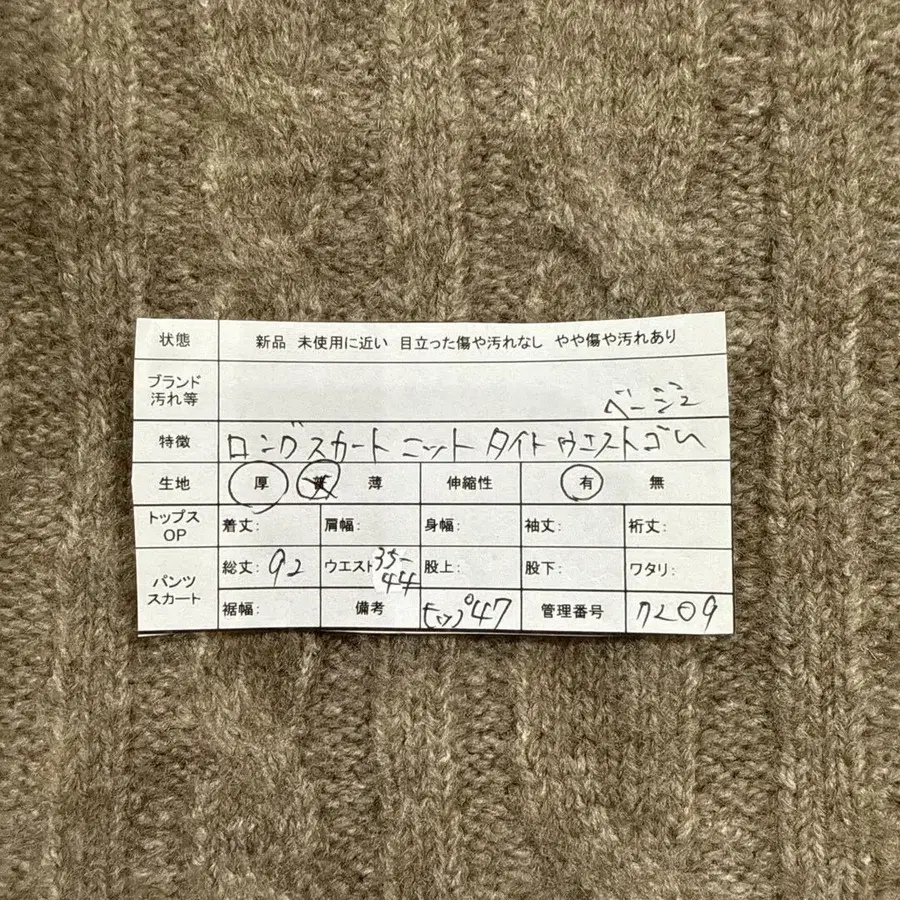 状態 新品 未使用に近い 目立った傷や汚れなし やや傷や汚れあり
ブランド
汚れ等 ベージュ
特徴 ロングスカート ニット タイト ウエストゴム
生地 厚 薄 伸縮性 有 無
トップス
OP 着丈: 肩幅: 身幅: 袖丈: 裄丈:
パンツ
スカート
総丈: 92 ウエスト 35-44 股上: 股下: ワタリ:
裾幅: 備考 ヒップ47 管理番号